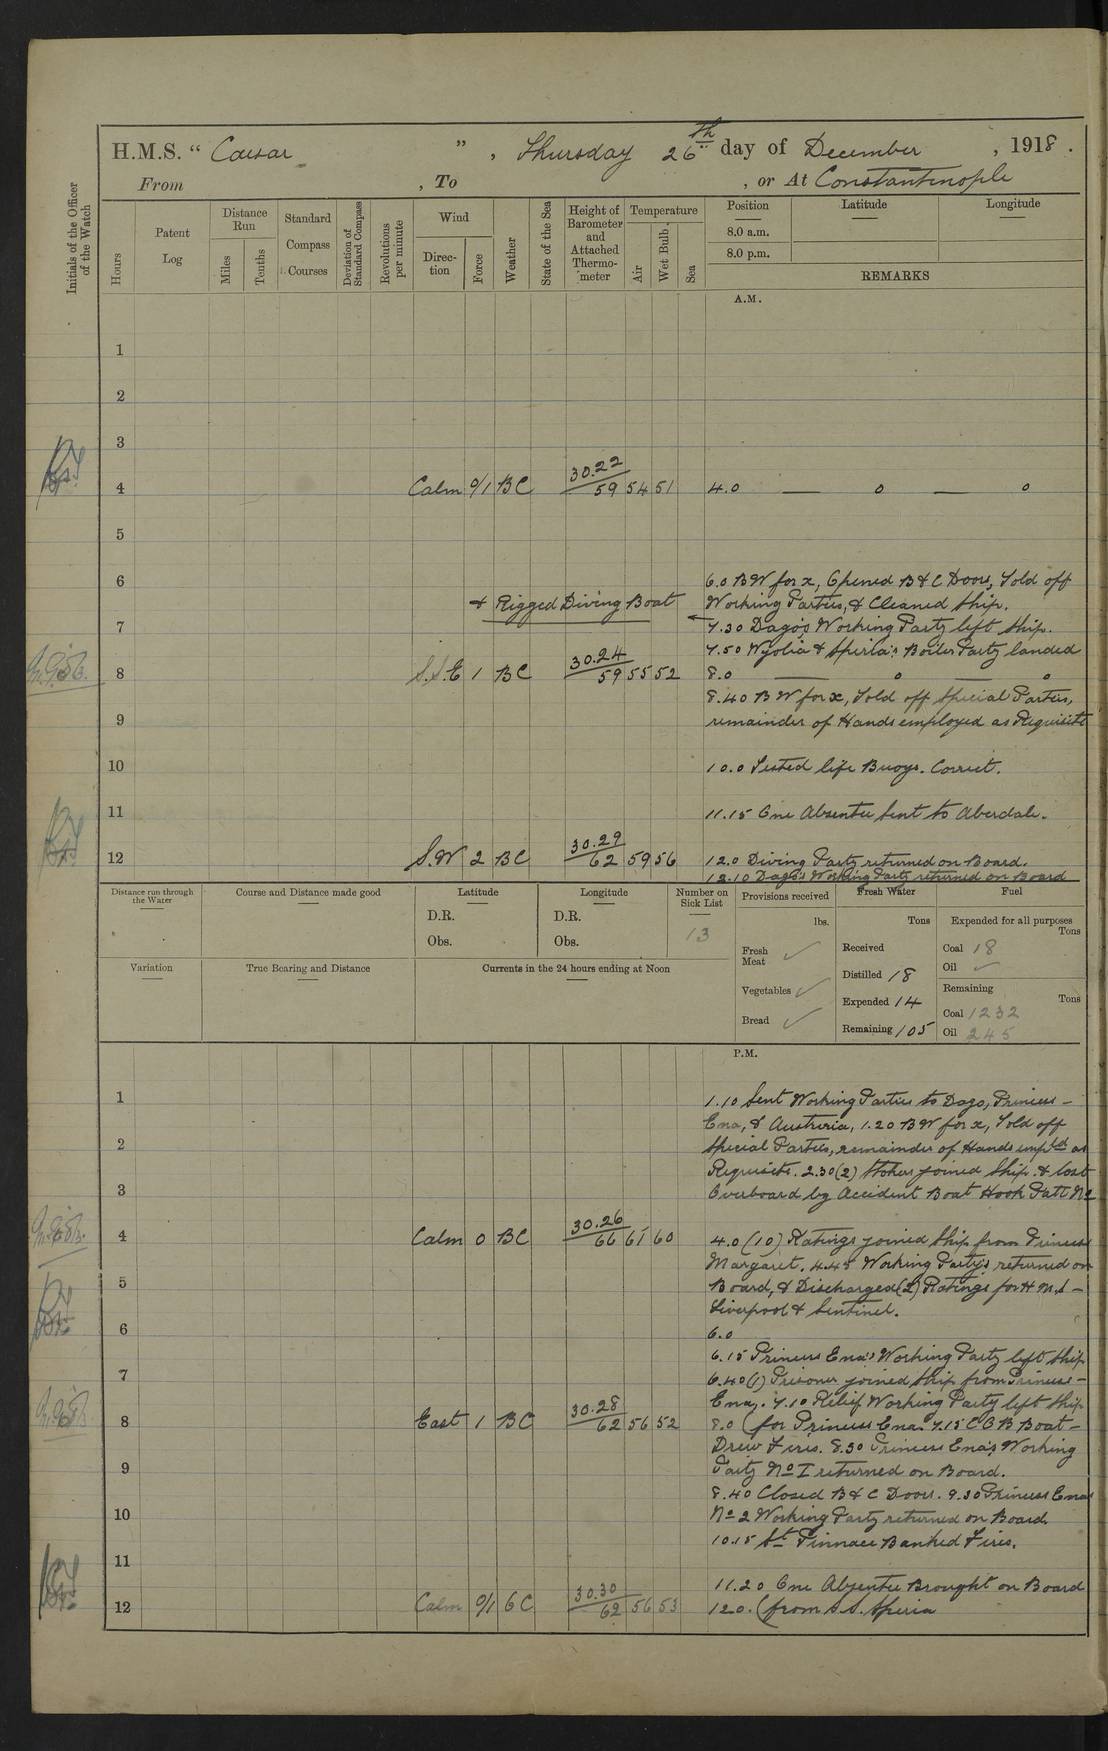 H.M.S. " Caesar ", Thursday 26th day of December, 1918.
From , To , or At Constantinople
Initials of the Officer of the Watch
Hours
Patent Log
Distance Run
Miles
Tenths
Standard Compass Courses
Deviation of Standard Compass
Revolutions per minute
Wind
Direction
Force
Weather
State of the Sea
Height of Barometer and Attached Thermometer
Temperature
Air
Wet Bulb
Sea
Position
8.0 a.m.
8.0 p.m.
Latitude
Longitude
REMARKS
A.M.
1
2
3
4 Calm 0/1 BC 30.22 59 54 51 4.0 — o — o
5
6 6.0 BW for x, Opened B & C Doors, Told off
+ Rigged Diving Boat Working Parties, & Cleaned Ship.
7 7.30 Dago's Working Party left Ship.
7.50 Boiler Party landed
8 S.S.E 1 BC 30.24 59 55 52 8.0 — o — o
8.40 BW for x, Told off Special Parties,
9 remainder of Hands employed as Requisite
10 10.0 Tested life Buoys. Correct.
11 11.15 One Absentee Sent to Aberdale.
12 S.W 2 BC 30.29 62 59 56 12.0 Diving Party returned on Board.
12.10 Dago's Working Party returned on Board
Distance run through the Water
Course and Distance made good
Latitude
D.R.
Obs.
Longitude
D.R.
Obs.
Number on Sick List
13
Provisions received
lbs.
Fresh Meat ✓
Vegetables ✓
Bread ✓
Fresh Water
Tons
Received
Distilled 18
Expended 14
Remaining 105
Fuel
Expended for all purposes
Tons
Coal 18
Oil ✓
Remaining
Tons
Coal 1232
Oil 245
Variation
True Bearing and Distance
Currents in the 24 hours ending at Noon
P.M.
1 1.10 Sent Working Parties to Dago, Princess –
Ena, & 1.20 BW for x, Told off
2 Special Parties, remainder of Hands empld as
Requisite. 2.30 (2) Stokers joined Ship. & lost
3 Overboard by Accident Boat Hook Patt No
4 Calm 0 BC 30.26 66 61 60 4.0 (10) Ratings joined Ship from Princess
Margaret. 4.45 Working Party's returned on
5 Board, & Discharged (2) Ratings for H.M.S –
Liverpool & Sentinel.
6 6.0
6.15 Princess Ena's Working Party left Ship
7 6.40 (1) Prisoner joined Ship from Princess –
Ena. 7.10 Relief Working Party left Ship
8 East 1 BC 30.28 62 56 52 8.0 (for Princess Ena. 7.15 Boat –
Drew Fires. 8.30 Princess Ena's Working
9 Party No I returned on Board.
8.40 Closed B & C Doors. 9.30 Princess Ena's
10 No 2 Working Party returned on Board.
10.15 St Pinnace Banked Fires.
11
11.20 One Absentee Brought on Board
12 Calm 0/1 BC 30.30 62 56 53 12.0. (from S.S. Speria